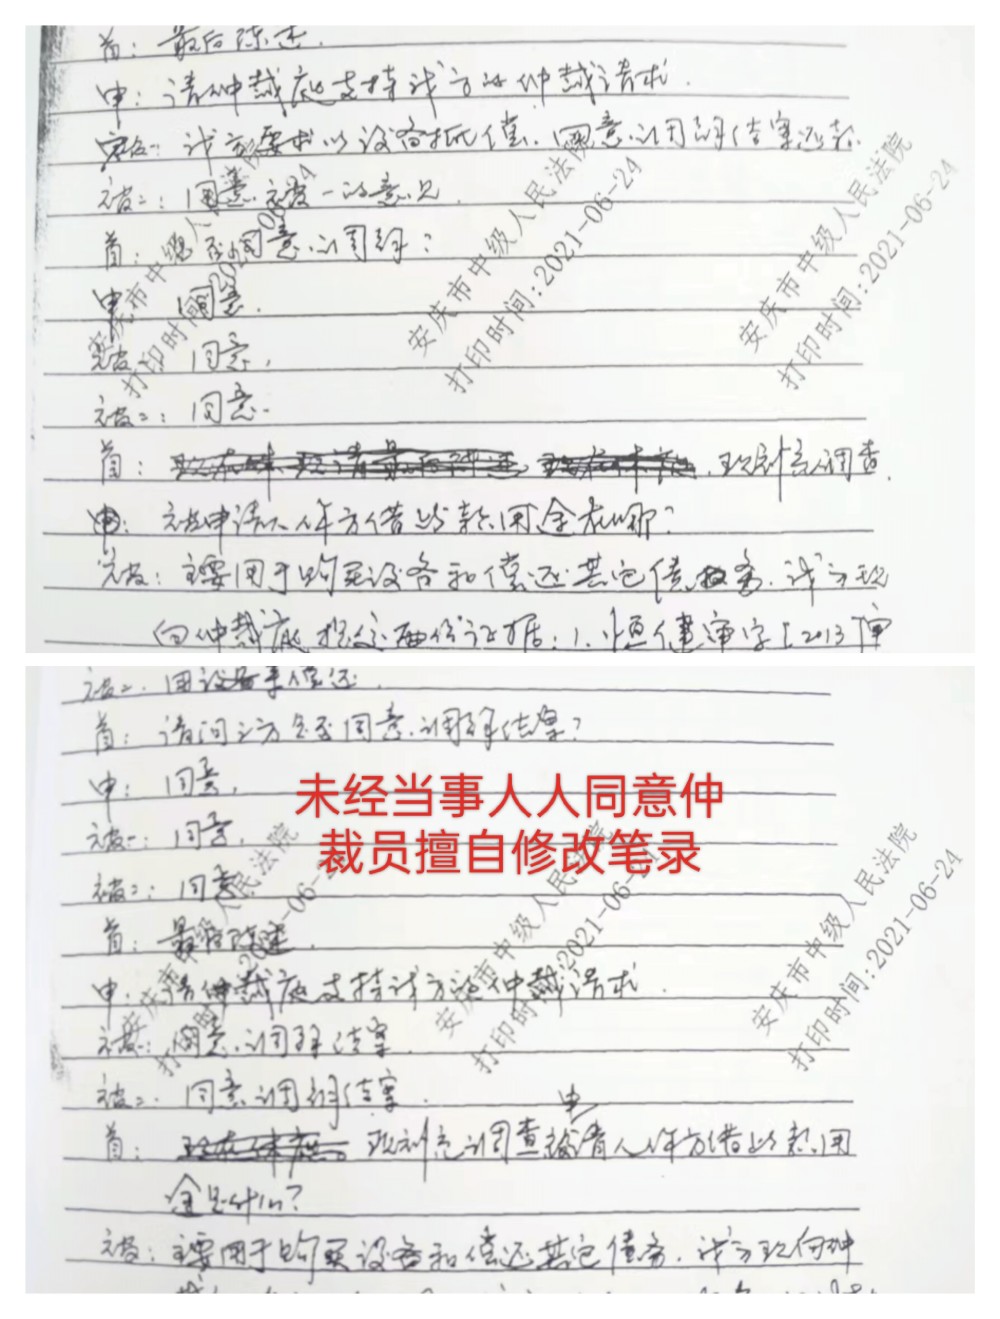 首：最后陈述.
申：请仲裁庭支持我方的仲裁请求.
我方要求以设备抵偿.同意调解结案还款.
被二：同意被一的意见.
首：是否同意调解？
申：同意.
被一：同意.
被二：同意.
首：现补充调查.
被申请人 方借 款用途在哪？
被：主要用于购买设备和偿还其它债务.我方现
向仲裁庭提交两份证据：1.恒健审字[2013]审
被二.用设备来偿还.
首：请问三方是否同意调解结案？
申：同意.
被一：同意.
被二：同意
首：最后陈述.
申：请仲裁庭支持我方的仲裁请求.
被一：同意调解结案.
被二.同意调解结案.
申
首：现补充调查被请人 方借 款用
途是什么？
被：主要用于购买设备和偿还其它债务.我方现向仲
未经当事人人同意仲
裁员擅自修改笔录
安庆市中级人民法院
打印时间:2021-06-24
安庆市中级人民法院
打印时间:2021-06-24
安庆市中级人民法院
打印时间:2021-06-24
安庆市中级人民法院
打印时间:2021-06-24
安庆市中级人民法院
打印时间:2021-06-24
安庆市中级人民法院
打印时间:2021-06-24